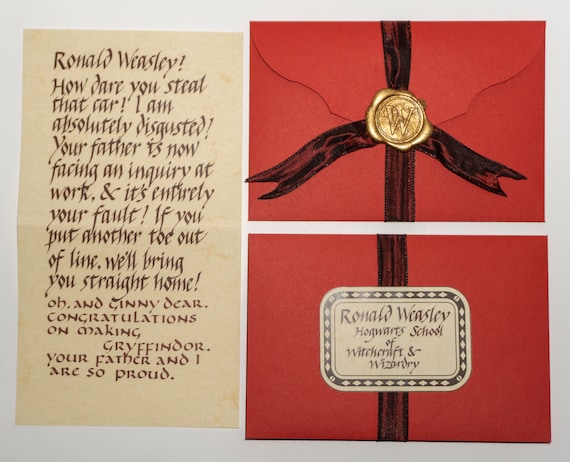 Ronald Weasley!
How dare you steal
that car! I am
absolutely disgusted!
Your father is now
facing an inquiry at
work, & it's entirely
your fault! If you
put another toe out
of line, we'll bring
you straight home!
oh, and Ginny dear,
congratulations
on making
Gryffindor.
your father and I
are so proud.
W
Ronald Weasley
Hogwarts School
of
Witchcraft &
Wizardry